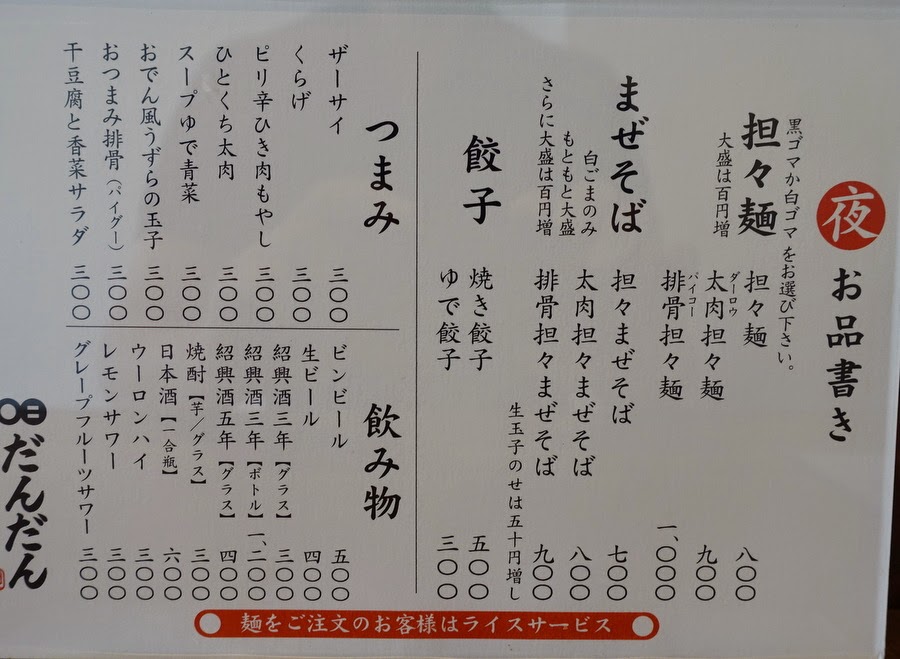 夜 お品書き
担々麺
黒ゴマか白ゴマをお選び下さい。
大盛は百円増
担々麺 八〇〇
太肉担々麺 九〇〇
ダーロウ
排骨担々麺 一、〇〇〇
パイコー
まぜそば
白ごまのみ
もともと大盛
さらに大盛は百円増
担々まぜそば 七〇〇
太肉担々まぜそば 八〇〇
排骨担々まぜそば 九〇〇
生玉子のせは五十円増し
餃子
焼き餃子 五〇〇
ゆで餃子 三〇〇
つまみ
ザーサイ 三〇〇
くらげ 三〇〇
ピリ辛ひき肉もやし 三〇〇
ひとくち太肉 三〇〇
スープゆで青菜 三〇〇
おでん風うずらの玉子 三〇〇
おつまみ排骨（パイグー） 三〇〇
干豆腐と香菜サラダ 三〇〇
飲み物
ビンビール 五〇〇
生ビール 四〇〇
紹興酒三年【グラス】 三〇〇
紹興酒三年【ボトル】 一、二〇〇
紹興酒五年【グラス】 四〇〇
焼酎【芋／グラス】 三〇〇
日本酒【一合瓶】 六〇〇
ウーロンハイ 三〇〇
レモンサワー 三〇〇
グレープフルーツサワー 三〇〇
だんだん
麺をご注文のお客様はライスサービス